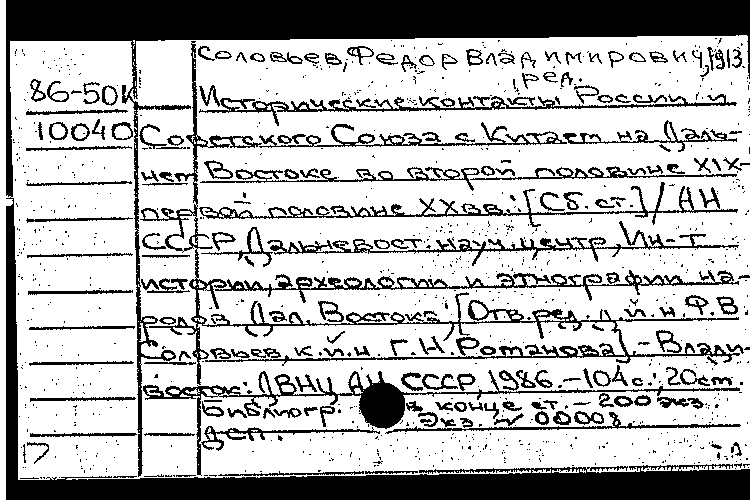 Соловьев, Федор Владимирович, 1913
, ред.
86-50К
Исторические контакты России и
10040 Советского Союза с Китаем на Даль-
нем Востоке во второй половине XIX-
первой половине XX вв.: [Сб. ст.] / АН
СССР, Дальневост. науч. центр, Ин-т
истории, археологии и этнографии на-
родов Дал. Востока; [Отв. ред. д.и.н. Ф.В.
Соловьев, к.и.н. Г.Н. Романова]. - Влади-
восток: ДВНЦ АН СССР, 1986. - 104 с.; 20 см.
Библиогр. в конце ст. - 200 экз.
Экз. № 00008.
деп.